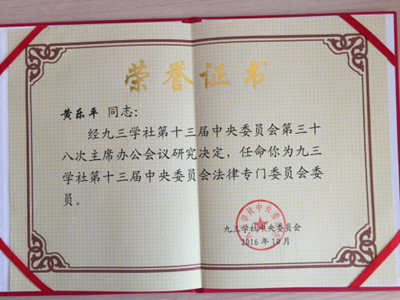 荣誉证书
黄乐平 同志:
经九三学社第十三届中央委员会第三十
八次主席办公会议研究决定，任命你为九三
学社第十三届中央委员会法律专门委员会委
员。
九三学社中央委员会
2016年10月